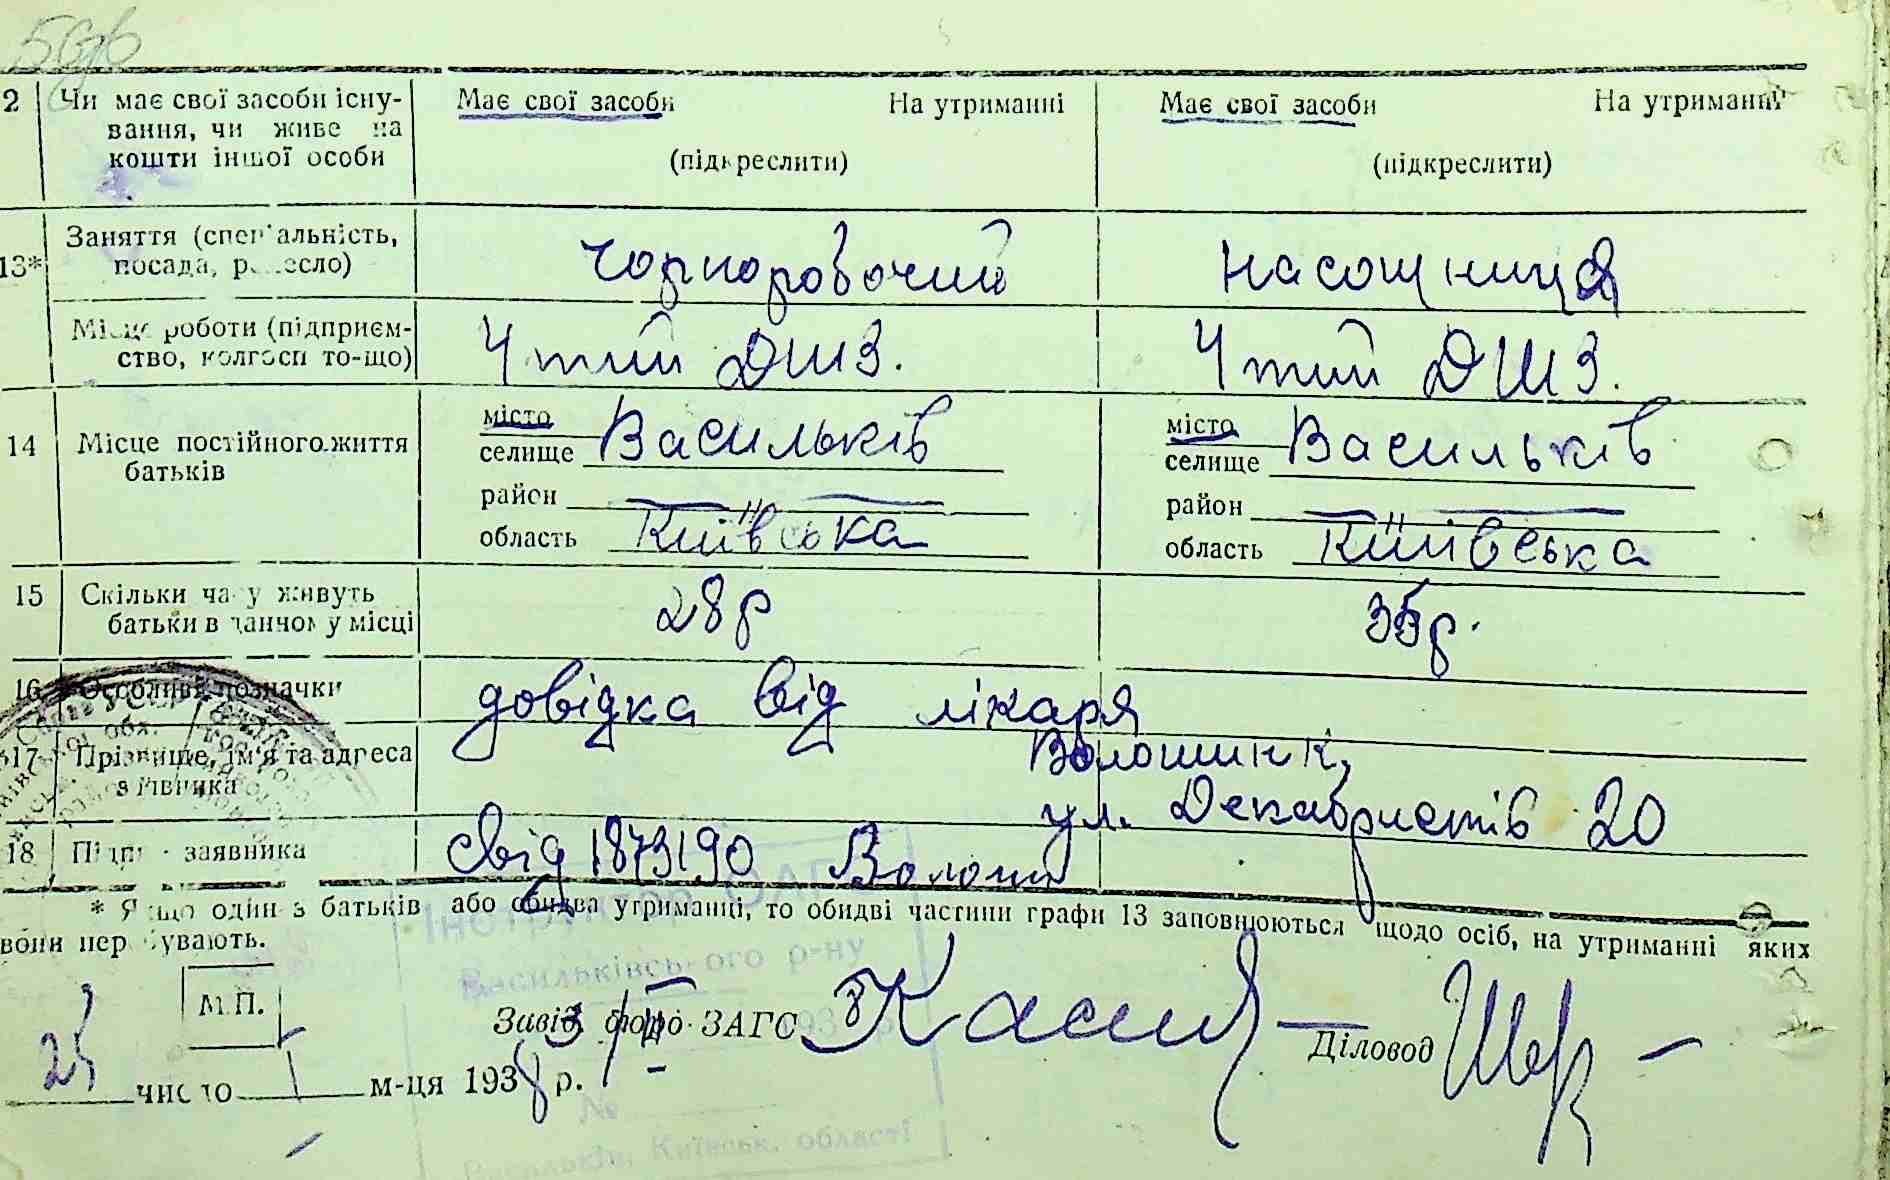 2 Чи має свої засоби існу- Має свої засоби На утриманні Має свої засоби На утриманні
вання, чи живе на
кошти іншої особи (підкреслити) (підкреслити)
13* Заняття (спеціальність, чорноробочий насощниця
посада, ремесло)
Місце роботи (підприєм- 4 тий ДШЗ. 4 тий ДШЗ.
ство, колгосп то-що)
14 Місце постійного життя місто Васильків місто Васильків
батьків селище селище
район район
область Київська область Київська
15 Скільки часу живуть 28 р 35 р.
батьки в данном у місці
16 Особливі позначки довідка від лікаря
17 Прізвище, ім'я та адреса Волошин К,
заявника ул. Декабристів 20
18 Підпис заявника свід 187319О Волош
* Якщо один з батьків або обидва утриманці, то обидві частини графи 13 заповнюються щодо осіб, на утриманні яких
вони перебувають.
Інструктор ОАГС
Васильківського р-ну
М.П.
Завід. бюро ЗАГС Діловод
25 число 1 м-ця 1938 р.
№
Васильків, Київськ. області